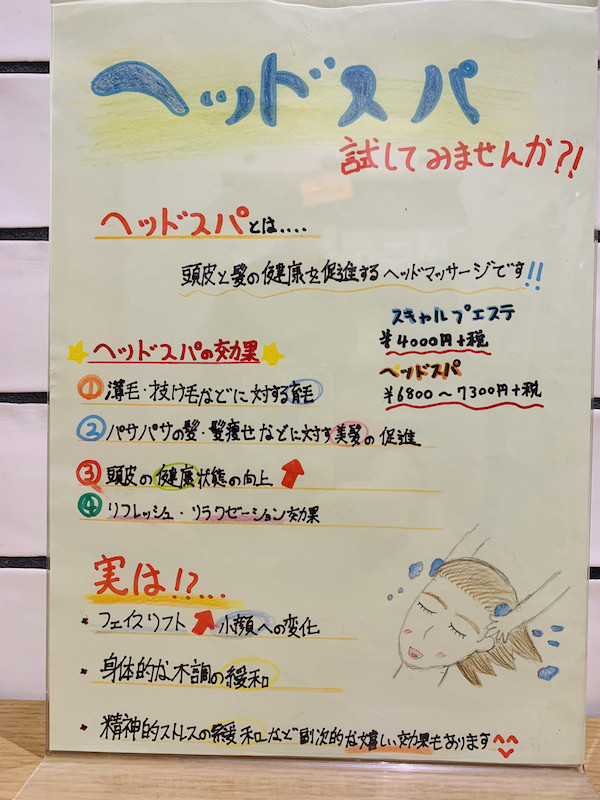 ヘッドスパ
試してみませんか?!
ヘッドスパとは....
頭皮と髪の健康を促進するヘッドマッサージです!!
スキャルプエステ
¥4000円+税
ヘッドスパ
¥6800～7300円+税
ヘッドスパの効果
① 薄毛・抜け毛などに対する育毛
② パサパサの髪・髪痩せなどに対す美髪の促進
③ 頭皮の健康状態の向上
④ リフレッシュ・リラクゼーション効果
実は!?...
・フェイスリフト 小顔への変化
・身体的な不調の緩和
・精神的ストレスの緩和など副次的な嬉しい効果もあります^^